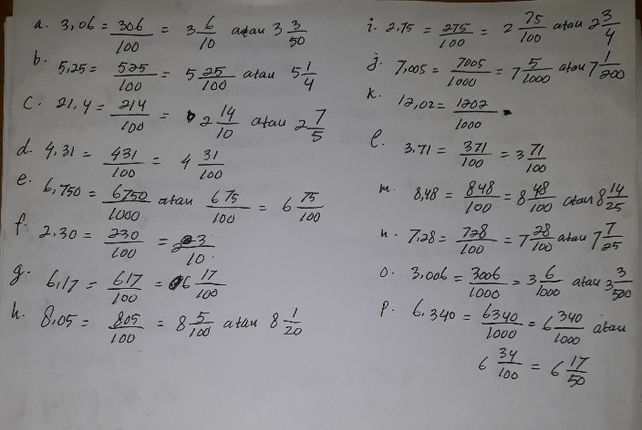 a. 3,06 = 306/100 = 3 6/10 atau 3 3/50
b. 5,25 = 525/100 = 5 25/100 atau 5 1/4
c. 21,4 = 214/100 = 2 14/10 atau 2 7/5
d. 4,31 = 431/100 = 4 31/100
e. 6,750 = 6750/1000 atau 675/100 = 6 75/100
f. 2,30 = 230/100 = 2 3/10
g. 6,17 = 617/100 = 6 17/100
h. 8,05 = 805/100 = 8 5/100 atau 8 1/20
i. 2,75 = 275/100 = 2 75/100 atau 2 3/4
j. 7,005 = 7005/1000 = 7 5/1000 atau 7 1/200
k. 12,02 = 1202/1000
l. 3,71 = 371/100 = 3 71/100
m. 8,48 = 848/100 = 8 48/100 atau 8 14/25
n. 7,28 = 728/100 = 7 28/100 atau 7 7/25
o. 3,006 = 3006/1000 = 3 6/1000 atau 3 3/500
p. 6,340 = 6340/1000 = 6 340/1000 atau
6 34/100 = 6 17/50